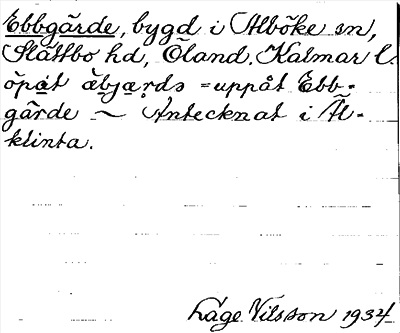 Ebbgärde, bygd i Alböke sn,
Slättbo hd, Öland. Kalmar l.
öpat äbjards = uppåt Ebb-
gärde ~ Antecknat i Äl-
klinta.
Lage Nilsson 1934.